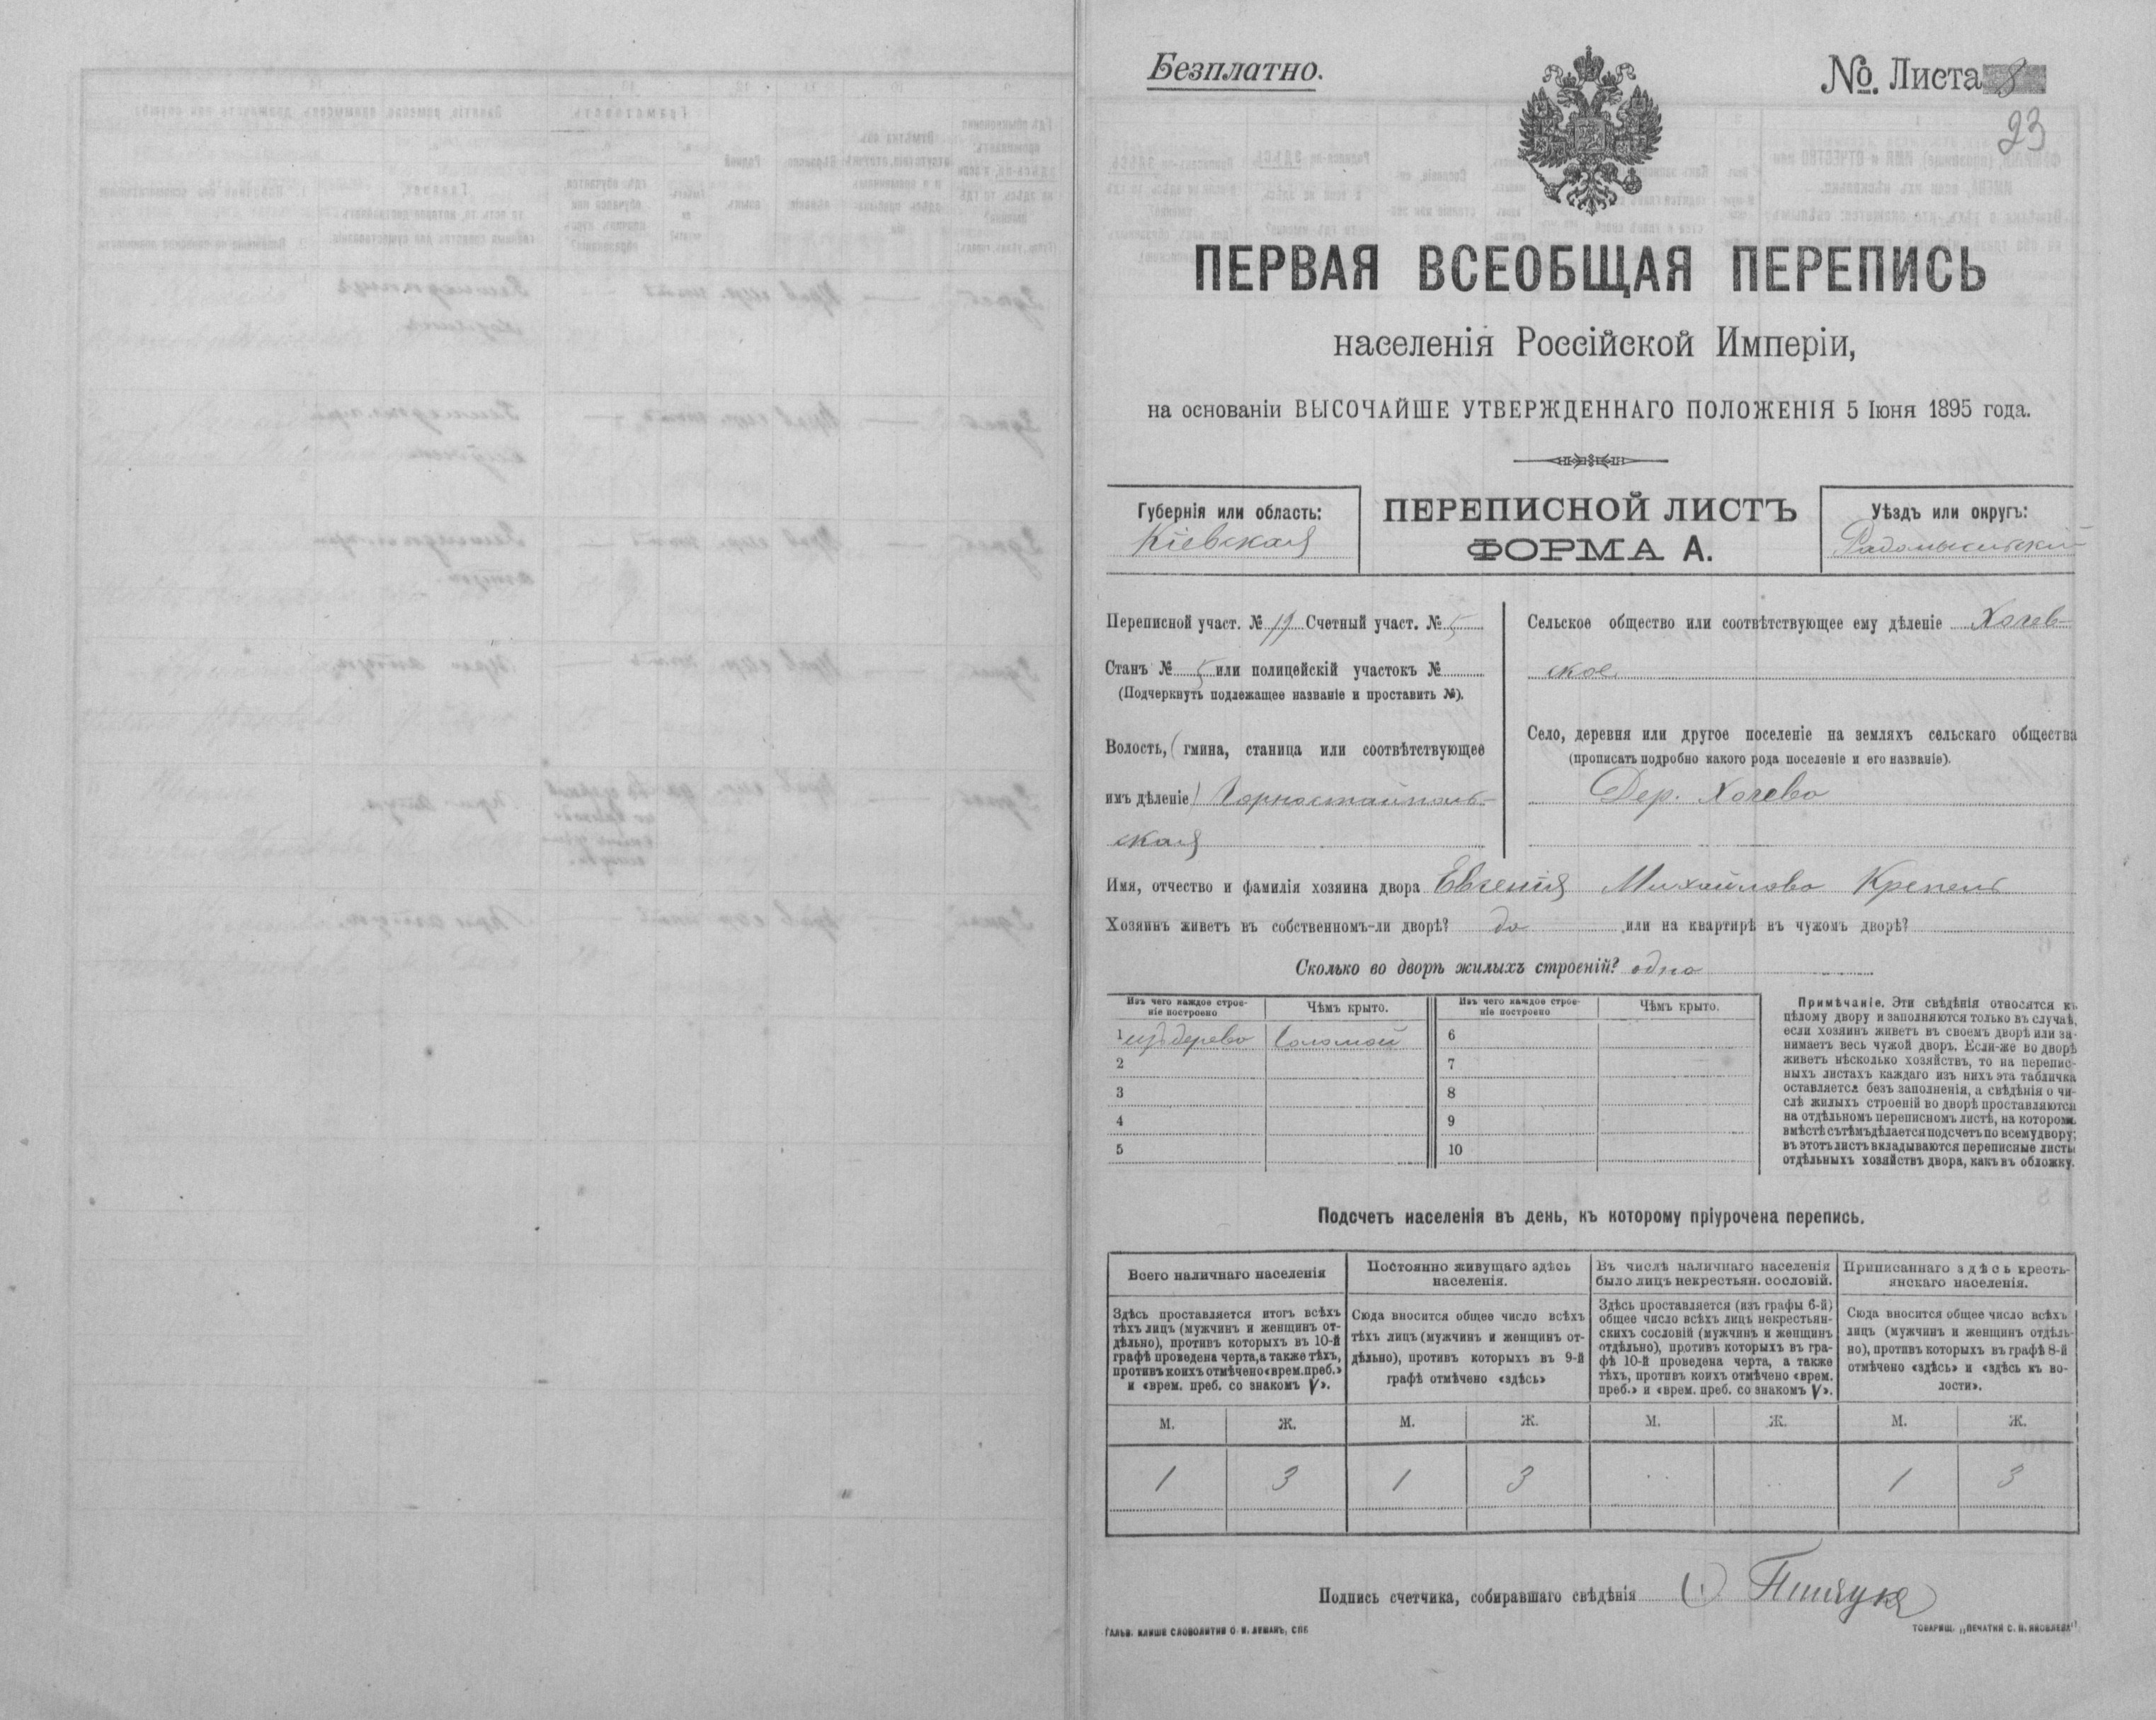 Безплатно.
№. Листа 8
23
ПЕРВАЯ ВСЕОБЩАЯ ПЕРЕПИСЬ
населенія Россійской Имперіи,
на основаніи ВЫСОЧАЙШЕ УТВЕРЖДЕННАГО ПОЛОЖЕНІЯ 5 Іюня 1895 года.
Губернія или область:
Кіевская
ПЕРЕПИСНОЙ ЛИСТЪ
ФОРМА А.
Уѣздъ или округъ:
Радомысльскій
Переписной участ. № 19 Счетный участ. № 5
Станъ № 5 или полицейскій участокъ №
(Подчеркнуть подлежащее названіе и проставить №).
Волость, (гмина, станица или соотвѣтствующее
имъ дѣленіе) Горностайполь-
ская
Сельское общество или соотвѣтствующее ему дѣленіе
ское
Село, деревня или другое поселеніе на земляхъ сельскаго общества
(прописать подробно какого рода поселеніе и его названіе).
Дер.
Имя, отчество и фамилія хозяина двора Евгенія Михайлова
Хозяинъ живетъ въ собственномъ-ли дворѣ? да или на квартирѣ въ чужомъ дворѣ?
Сколько во дворѣ жилыхъ строеній? одно
Изъ чего каждое строе-
ніе построено
Чѣмъ крыто.
Изъ чего каждое строе-
ніе построено
Чѣмъ крыто.
1 изъ дерева Соломой 6
2 7
3 8
4 9
5 10
Примѣчаніе. Эти свѣдѣнія относятся къ
цѣлому двору и заполняются только въ случаѣ,
если хозяинъ живетъ въ своемъ дворѣ или за-
нимаетъ весь чужой дворъ. Если-же во дворѣ
живетъ нѣсколько хозяйствъ, то на перепис-
ныхъ листахъ каждаго изъ нихъ эта табличка
оставляется безъ заполненія, а свѣдѣнія о чи-
слѣ жилыхъ строеній во дворѣ проставляются
на отдѣльномъ переписномъ листѣ, на которомъ
вмѣстѣ съ тѣмъ дѣлается подсчетъ по всему двору;
въ этотъ листъ вкладываются переписные листы
отдѣльныхъ хозяйствъ двора, какъ въ обложку.
Подсчетъ населенія въ день, къ которому пріурочена перепись.
Всего наличнаго населенія
Здѣсь проставляется итогъ всѣхъ
тѣхъ лицъ (мужчинъ и женщинъ от-
дѣльно), противъ которыхъ въ 10-й
графѣ проведена черта, а также тѣхъ,
противъ коихъ отмѣчено «врем. преб.»
и «врем. преб. со знакомъ V».
Постоянно живущаго здѣсь
населенія.
Сюда вносится общее число всѣхъ
тѣхъ лицъ (мужчинъ и женщинъ от-
дѣльно), противъ которыхъ въ 9-й
графѣ отмѣчено «здѣсь»
Въ числѣ наличнаго населенія
было лицъ некрестьян. сословій.
Здѣсь проставляется (изъ графы 6-й)
общее число всѣхъ лицъ некрестьян-
скихъ сословій (мужчинъ и женщинъ
отдѣльно), противъ которыхъ въ гра-
фѣ 10-й проведена черта, а также
тѣхъ, противъ коихъ отмѣчено «врем.
преб.» и «врем. преб. со знакомъ V».
Приписаннаго здѣсь кресть-
янскаго населенія.
Сюда вносится общее число всѣхъ
лицъ (мужчинъ и женщинъ отдѣль-
но), противъ которыхъ въ графѣ 8-й
отмѣчено «здѣсь» и «здѣсь къ во-
лости».
М. Ж. М. Ж. М. Ж. М. Ж.
1 3 1 3 1 3
Подпись счетчика, собиравшаго свѣдѣнія
ГАЛЬВ. КЛИШЕ СЛОВОЛИТНИ О. И. ЛЕМАНЪ, СПБ
ТОВАРИЩ. „ПЕЧАТНЯ С. П. ЯКОВЛЕВА"